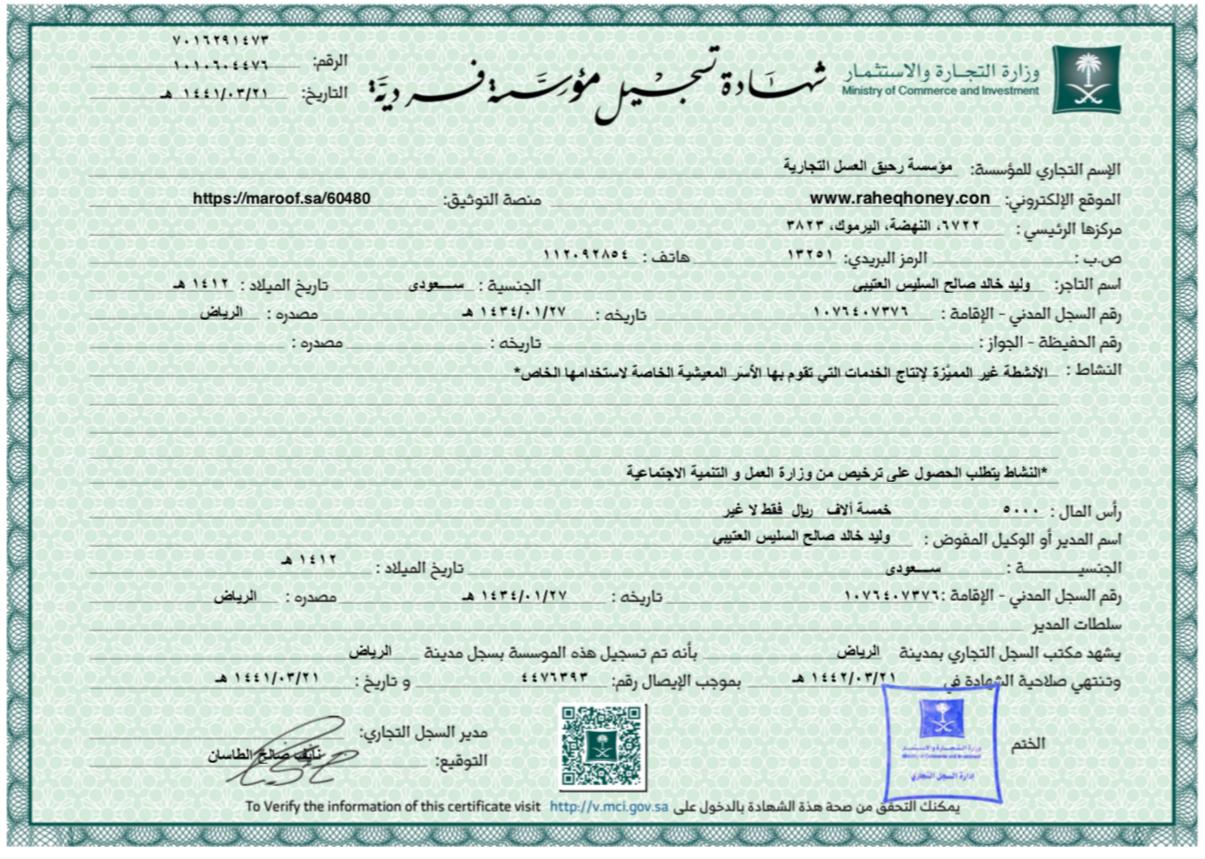 ٧٠١٦٢٩١٤٧٣
الرقم: ١٠١٠٦٠٤٤٧٦
التاريخ: ١٤٤١/٠٣/٢١ هـ
شهادة تسجيل مؤسسة فردية
وزارة التجارة والاستثمار
Ministry of Commerce and Investment
الإسم التجاري للمؤسسة: مؤسسة رحيق العسل التجارية
الموقع الإلكتروني: www.raheqhoney.con منصة التوثيق: https://maroof.sa/60480
مركزها الرئيسي : ٦٧٢٢، النهضة، اليرموك، ٣٨٢٣
ص.ب : الرمز البريدي: ١٣٢٥١ هاتف : ١١٢٠٩٢٨٥٤
اسم التاجر: وليد خالد صالح السليس العتيبى الجنسية : سعودى تاريخ الميلاد : ١٤١٢ هـ
رقم السجل المدني - الإقامة : ١٠٧٦٤٠٧٣٧٦ تاريخه : ١٤٣٤/٠١/٢٧ هـ مصدره : الرياض
رقم الحفيظة - الجواز : تاريخه : مصدره :
النشاط : الأنشطة غير المميَّزة لإنتاج الخدمات التي تقوم بها الأسَر المعيشية الخاصة لاستخدامها الخاص*
*النشاط يتطلب الحصول على ترخيص من وزارة العمل و التنمية الاجتماعية
رأس المال : ٥٠٠٠ خمسة ألاف ريال فقط لا غير
اسم المدير أو الوكيل المفوض : وليد خالد صالح السليس العتيبي
الجنسيــــــة : سعودى تاريخ الميلاد : ١٤١٢ هـ
رقم السجل المدني - الإقامة :١٠٧٦٤٠٧٣٧٦ تاريخه : ١٤٣٤/٠١/٢٧ هـ مصدره : الرياض
سلطات المدير
يشهد مكتب السجل التجاري بمدينة الرياض بأنه تم تسجيل هذه الموسسة بسجل مدينة الرياض
وتنتهي صلاحية الشهادة في ١٤٤٢/٠٣/٢١ هـ بموجب الإيصال رقم: ٤٤٧٦٣٩٣ و تاريخ : ١٤٤١/٠٣/٢١ هـ
الختم
وزارة التجارة والاستثمار
Ministry of Commerce and Investment
إدارة السجل التجاري
مدير السجل التجاري:
التوقيع: نايف صالح الطاسان
يمكنك التحقق من صحة هذة الشهادة بالدخول على http://v.mci.gov.sa To Verify the information of this certificate visit